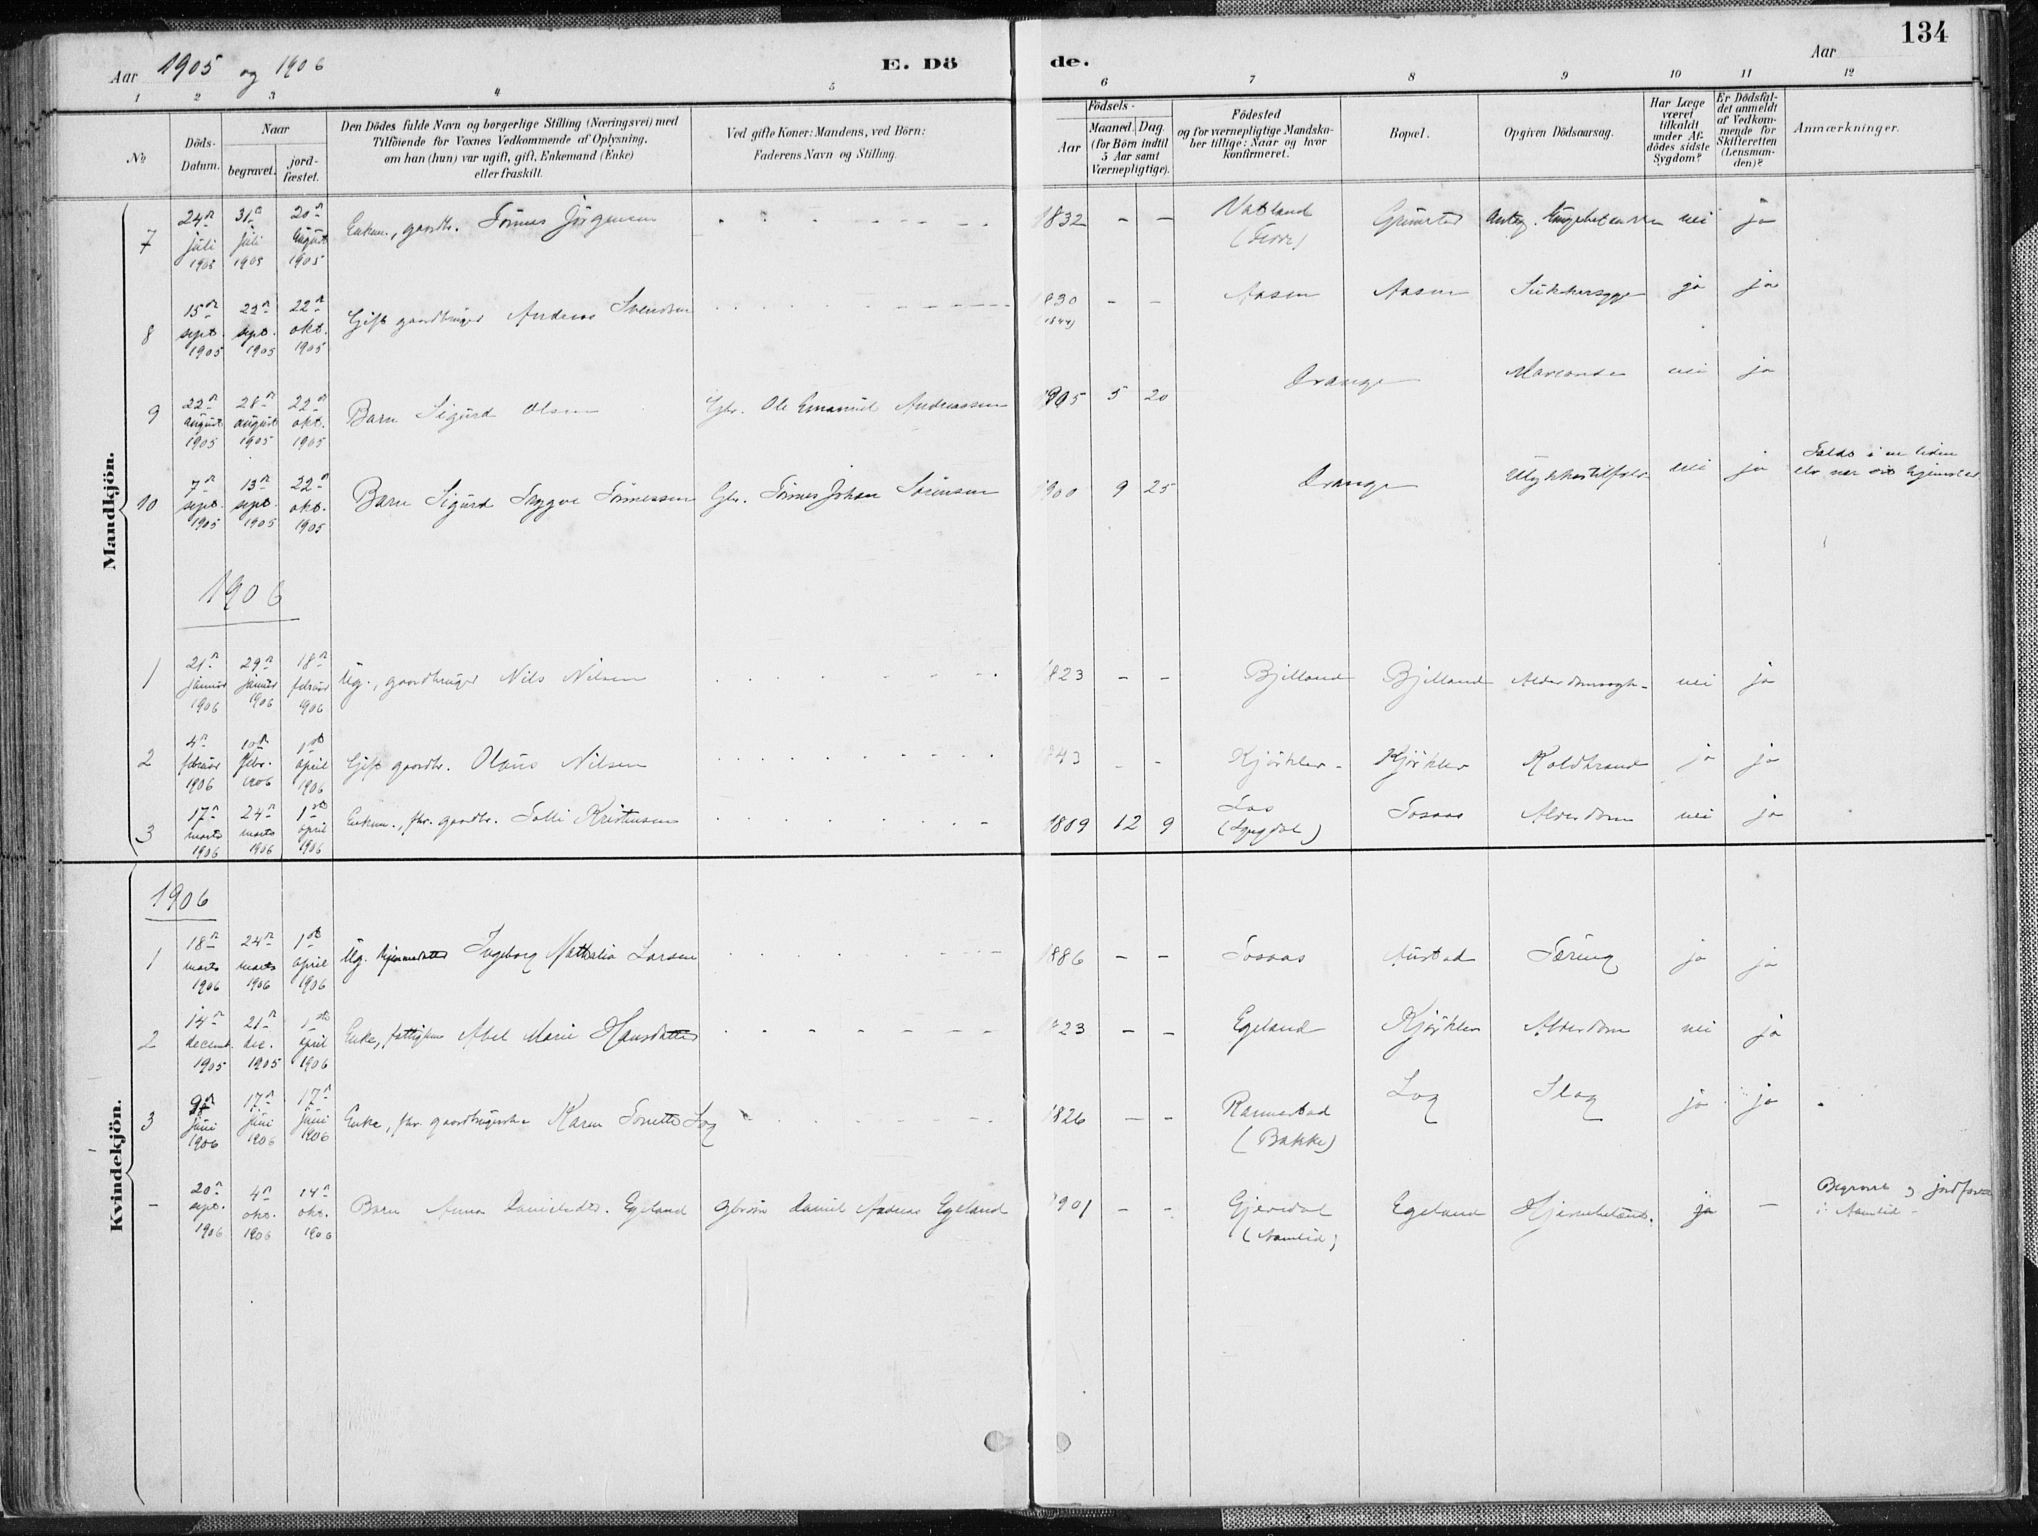 134
Aar 1905 og 1906
E. Dö de.
Aar
1 2 3 4 5 6 7 8 9 10 11 12
No
Döds-Datum.
Naar
begravet.
jord-fæstet.
Den Dödes fulde Navn og borgerlige Stilling (Næringsvei) med
Tilföiende for Voxnes Vedkommende af Oplysning,
om han (hun) var ugift, gift, Enkemand (Enke)
eller fraskilt.
Ved gifte Koner: Mandens, ved Börn:
Faderens Navn og Stilling.
Födsels-
Aar
Maaned. Dag.
(for Börn indtil
5 Aar samt
Værnepligtige).
Födested
og for værnepligtige Mandska-
ber tillige: Naar og hvor
konfirmeret.
Bopæl.
Opgiven Dödsaarsag.
Har Læge
været
tilkaldt
under Af-
dödes sidste
Sygdom?
Er Dödsfal-
det anmeldt
af Vedkom-
mende for
Skifteretten
(Lensman-
den)?
Anmærkninger.
Mandkjön.
7 24de juli 1905 31te juli 1905 20de august 1905 Enkem., gaardbr. Tönnes Jörgensen 1832 - - Vatland nei ja
8 15de sept. 1905 22de sept. 1905 22de okt. 1905 Gift gaardbruger Andreas Svendsen 1830 (1844) - - Aasen Aasen Sukkersyge ja ja
9 22de august 1905 28de august 1905 22de okt. 1905 Barn Sigurd Olsen Gbr. Ole Emanuel Andreassen 1905 5 20 Drange nei ja
10 7de sept. 1905 13de sept. 1905 22de okt. 1905 Barn Sigurd Trygve Tönnessen Gbr. Tönnes Johan Sörensen 1900 9 25 Drange Ulykkestilfælde nei ja Faldt i en liden elv nær sit hjemsted
1906
1 21de januar 1906 29de januar 1906 18de februar 1906 Ug., gaardbruger Nils Nilsen 1823 - - Bjelland Bjelland nei ja
2 4de februar 1906 10de febr. 1906 1ste april 1906 Gift gaardbr. Olaus Nilsen 1843 - - Kjörkler Kjörkler Koldbrand ja ja
3 17de marts 1906 24de marts 1906 1ste april 1906 Enkem., fhv. gaardbr. Salli Kristensen 1809 12 9 (Lyngdal) Tosaas Alderdom nei ja
Kvindekjön.
1906
1 18de marts 1906 24de marts 1906 1ste april 1906 Ug. hjemmedatter Ingeborg Mathalia Larsen 1886 - - Tosaas Austad Tæring ja ja
2 14de decemb. 1905 21de dec. 1905 1ste april 1906 Enke, fattiglem Abel Marie Hansdatter 1823 - - Egeland Kjörkler Alderdom nei ja
3 9de juni 1906 17de juni 1906 17de juni 1906 Enke, fhv. gaardbrugerske Karen Tonette Log 1826 - - (Bakke) Log Slag ja ja
- 20de sept. 1906 4de okt. 1906 14de okt. 1906 Barn Anna Danielsdtr. Egeland Gbrsön Daniel Andreas Egeland 1901 - - Gjerdal (Aamlid) Egeland ja - Begravet og jordfæstet i Aamlid